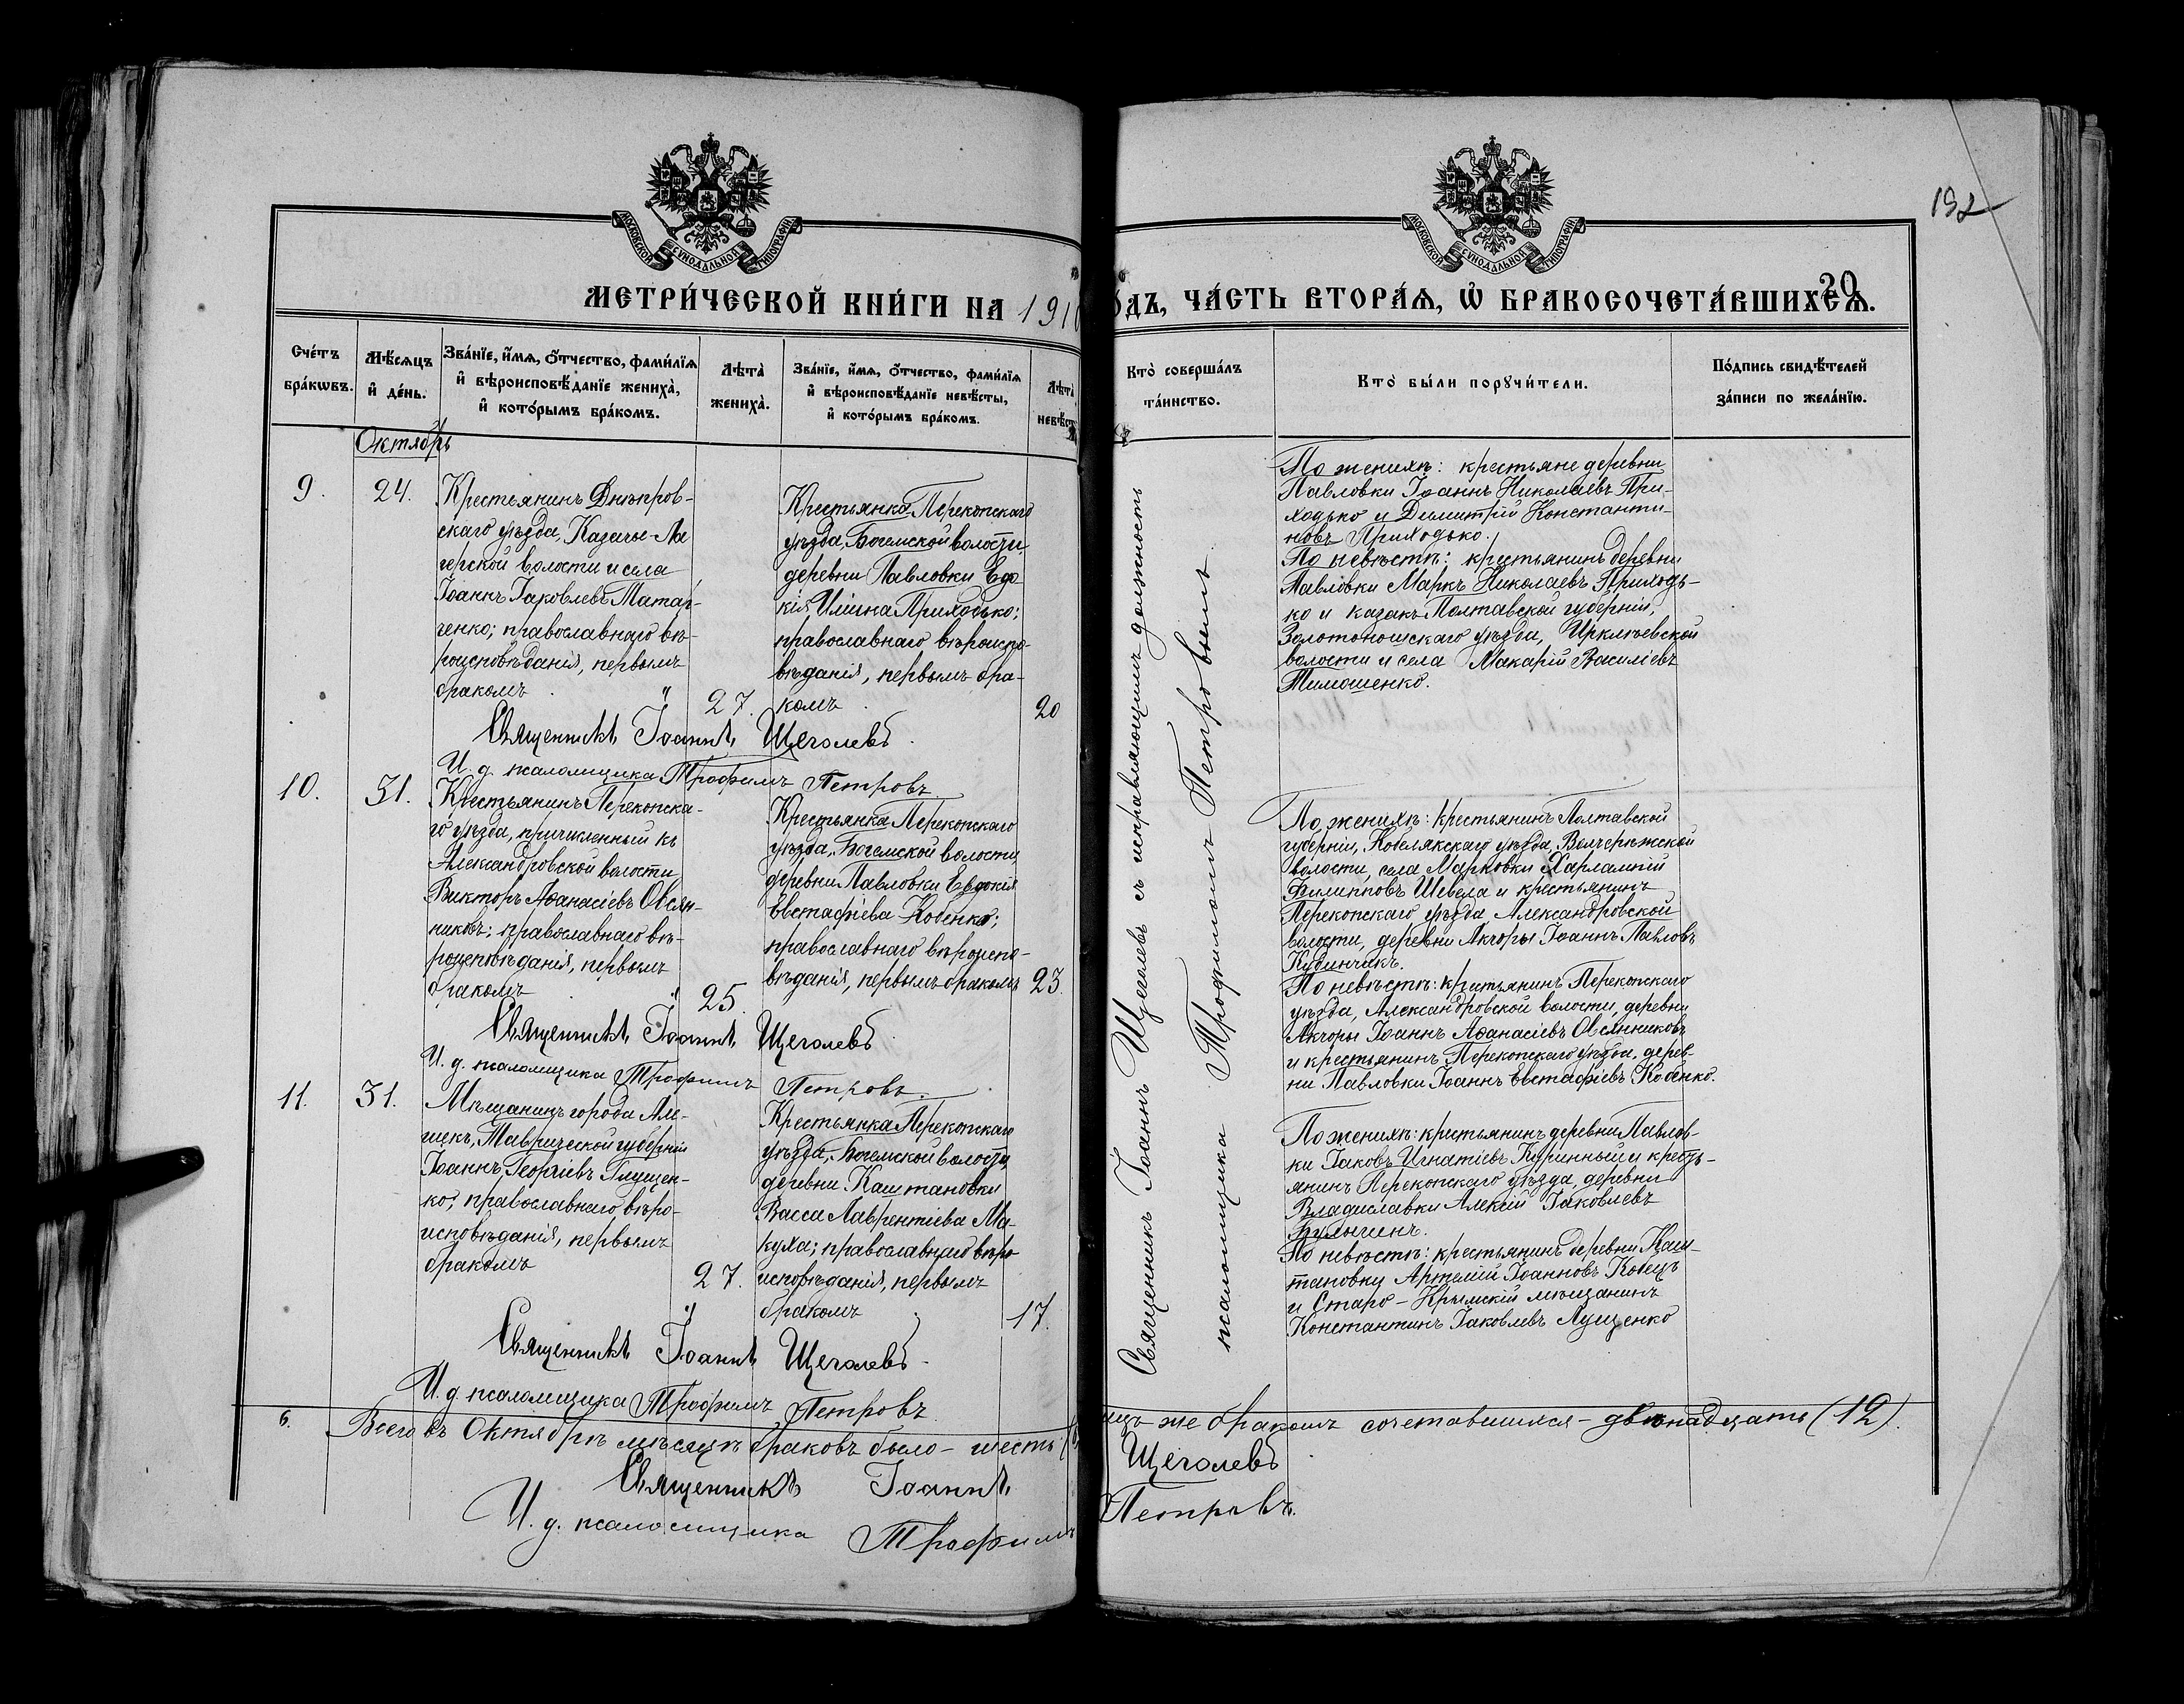 МОСКОВСКОЙ СѴНОДАЛЬНОЙ ТИПОГРАФІИ
МОСКОВСКОЙ СѴНОДАЛЬНОЙ ТИПОГРАФІИ
192
20
МЕТРИ́ЧЕСКОЙ КНИ́ГИ НА 191
ЧА́СТЬ ВТОРА́Я, Ѡ҆ БРАКОСОЧЕТА́ВШИХСЯ.
Сче́тъ
бра́кѡвъ.
Мѣ́сяцъ
и҆ де́нь.
Зва́нїе, и҆́мя, ѻ҆́тчество, фами́лїя
и҆ вѣроисповѣ́данїе жениха̀,
и҆ кото́рымъ бра́комъ.
Лѣта̀
жениха̀.
Зва́нїе, и҆́мя, ѻ҆́тчество, фами́лїя
и҆ вѣроисповѣ́данїе невѣ́сты,
и҆ кото́рымъ бра́комъ.
Лѣта̀
невѣст
Кто̀ соверша́лъ
та́инство.
Кто̀ бы́ли порꙋчи́тели.
По́дпись свидѣ́телей
за́писи по жела́нїю.
Октябрь
9.
24.
Крестьянинъ Днѣпров-
скаго уѣзда, Казачье-Ла
герской волости и села
Іоаннъ Іаковлевъ
ченко; православнаго вѣ-
роисповѣданія, первымъ
бракомъ
27.
Крестьянка Перекопскаго
уѣзда, Богемской волости
деревни Павловки Евдо
кія Иліина Приходько;
православнаго вѣроиспо-
вѣданія, первымъ бра-
комъ
20
По женихѣ: крестьяне деревни
Павловки Іоаннъ Николаевъ При-
ходько и Димитрій Константи-
новъ Приходько.
По невѣстѣ: крестьянинъ деревни
Павловки Маркъ Николаевъ Приходь-
ко и казакъ Полтавской губерніи,
Золотоношскаго уѣзда, Ирклѣевской
волости и села Макарій Василіевъ
Тимошенко.
Священникъ Іоаннъ Щеголевъ
И. д. псаломщика Трофимъ Петровъ.
10.
31.
Крестьянинъ Перекопска-
го уѣзда, причисленный къ
Александровской волости
Викторъ Аѳанасіевъ Овсян-
никовъ; православнаго вѣ-
роисповѣданія, первымъ
бракомъ
25.
Крестьянка Перекопскаго
уѣзда, Богемской волости,
деревни Павловки Евдокія
Евстафіева Кобенко;
православнаго вѣроиспо-
вѣданія, первымъ бракомъ
23.
По женихѣ: крестьянинъ Полтавской
губерніи, Кобелякскаго уѣзда,
волости, села Марковки Харлампій
Филипповъ Шевела и крестьянинъ
Перекопскаго уѣзда, Александровской
волости, деревни Акчоры Іоаннъ Павловъ
Кубинчикъ.
По невѣстѣ: крестьянинъ Перекопскаго
уѣзда, Александровской волости, деревни
Акчоры Іоаннъ Аѳанасіевъ Овсянниковъ
и крестьянинъ Перекопскаго уѣзда, дерев-
ни Павловки Іоаннъ Евстафіевъ Кобенко.
Священникъ Іоаннъ Щеголевъ
И. д. псаломщика Трофимъ Петровъ.
11.
31.
Мѣщанинъ города Але-
шекъ, Таврической губерніи
Іоаннъ Георгіевъ Глущен-
ко; православнаго вѣро-
исповѣданія, первымъ
бракомъ
27.
Крестьянка Перекопскаго
уѣзда, Богемской волости,
деревни Каштановки
Васса Лаврентіева Ма-
куха; православнаго вѣро-
исповѣданія, первымъ
бракомъ
17.
По женихѣ: крестьянинъ деревни Павлов-
ки Іаковъ Игнатіевъ Куринный и кресть-
янинъ Перекопскаго уѣзда, деревни
Владиславки Алексій Іаковлевъ
Булыгинъ.
По невѣстѣ: крестьянинъ деревни Каш-
тановки Артемій Іоанновъ Кобецъ
и Старо-Крымскій мѣщанинъ
Константинъ Іаковлевъ Лущенко
Священникъ Іоаннъ Щеголевъ
И. д. псаломщика Трофимъ Петровъ.
Священникъ Іоаннъ Щеголевъ съ исправляющимъ должность
псаломщика Трофимомъ Петровымъ.
6.
Всего въ Октябрѣ мѣсяцѣ браковъ было - шесть
же бракомъ сочетавшихся - двѣнадцать (12).
Священникъ Іоаннъ Щеголевъ
И. д. псаломщика Трофимъ Петровъ.